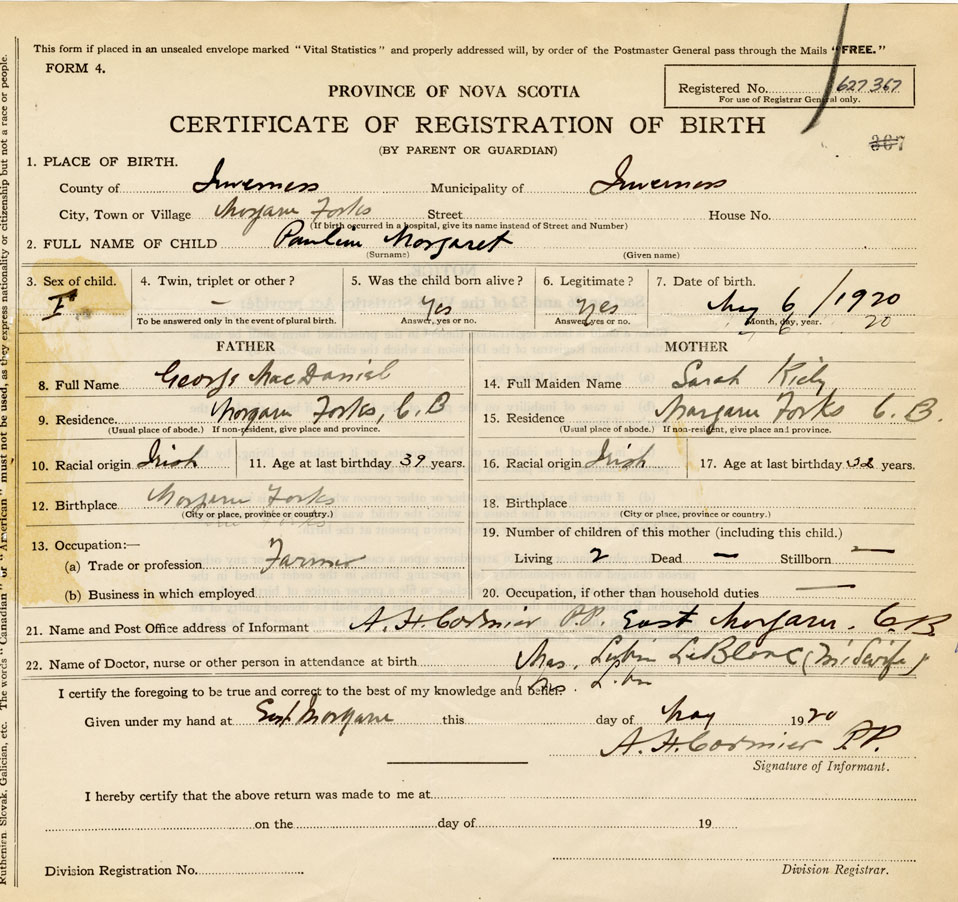 This form if placed in an unsealed envelope marked "Vital Statistics" and properly addressed will, by order of the Postmaster General pass through the Mails "FREE."
FORM 4.
Registered No. 627367
For use of Registrar General only.
PROVINCE OF NOVA SCOTIA
CERTIFICATE OF REGISTRATION OF BIRTH
367
(BY PARENT OR GUARDIAN)
1. PLACE OF BIRTH.
County of Inverness Municipality of Inverness
City, Town or Village Margaree Forks Street House No.
(If birth occurred in a hospital, give its name instead of Street and Number)
2. FULL NAME OF CHILD Margaret
(Surname) (Given name)
3. Sex of child. 4. Twin, triplet or other? 5. Was the child born alive? 6. Legitimate? 7. Date of birth.
F — Yes Yes May 6/1920
To be answered only in the event of plural birth. Answer, yes or no. Answer, yes or no. Month, day, year. 20
FATHER MOTHER
8. Full Name George MacDaniel 14. Full Maiden Name Sarah Kiely
9. Residence Margaree Forks, C. B 15. Residence Margaree Forks C. B.
(Usual place of abode.) If non-resident, give place and province. (Usual place of abode.) If non-resident, give place and province.
10. Racial origin Irish 11. Age at last birthday 39 years. 16. Racial origin Irish 17. Age at last birthday years.
12. Birthplace Margaree Forks 18. Birthplace
(City or place, province or country.) (City or place, province or country.)
19. Number of children of this mother (including this child.)
13. Occupation:—
(a) Trade or profession Farmer Living 2 Dead — Stillborn —
(b) Business in which employed 20. Occupation, if other than household duties —
21. Name and Post Office address of Informant A. H. Cormier P.P. East Margaree. C.B
22. Name of Doctor, nurse or other person in attendance at birth Mrs. LeBlanc (Midwife)
I certify the foregoing to be true and correct to the best of my knowledge and belief.
Given under my hand at East Margaree this day of May 1920
A. H. Cormier P.P.
Signature of Informant.
I hereby certify that the above return was made to me at
on the day of 19
Division Registration No. Division Registrar.
Ruthenian, Slovak, Galician, etc. The words "Canadian" or "American" must not be used, as they express nationality or citizenship but not a race or people.